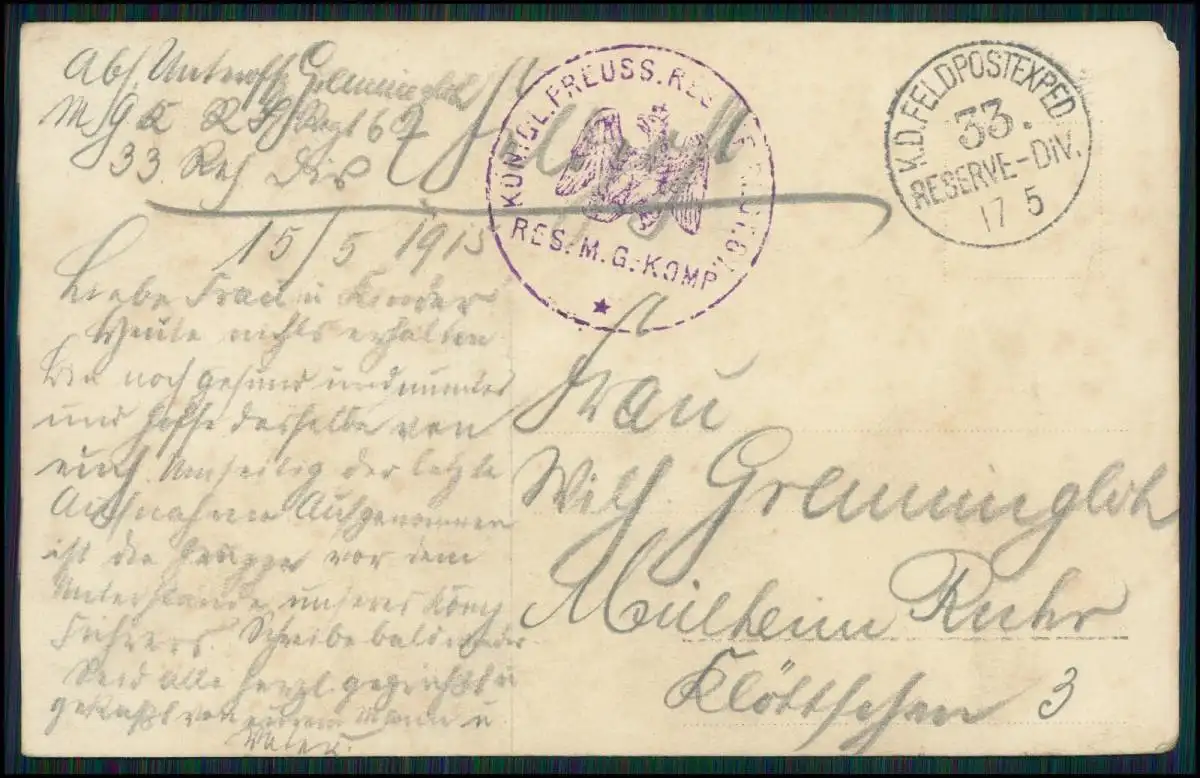 Abs. Unteroffz Gremmingloh
M.G.K. R.I. Regt 67
33 Res Div
Feldpost
KÖNIGL. PREUSS. RES.
RES. M.G.-KOMP.
K.D. FELDPOSTEXPED.
33.
RESERVE-DIV.
17 5
15/5 1915
Liebe Frau u Kinder
Heute nichts erhalten
Bin noch gesund und munter
und hoffe dasselbe von
euch Umseitig der letzte
Aufnahme Aufgenommen
ist die Gruppe vor dem
Unterstande unseres Komp
Führers. Schreibe bald wieder
Seid alle herzl gegrüßt u
geküßt von eurem Mann u
Vater.
Frau
Wilh Gremmingloh
Mülheim Ruhr
Klöttschen 3